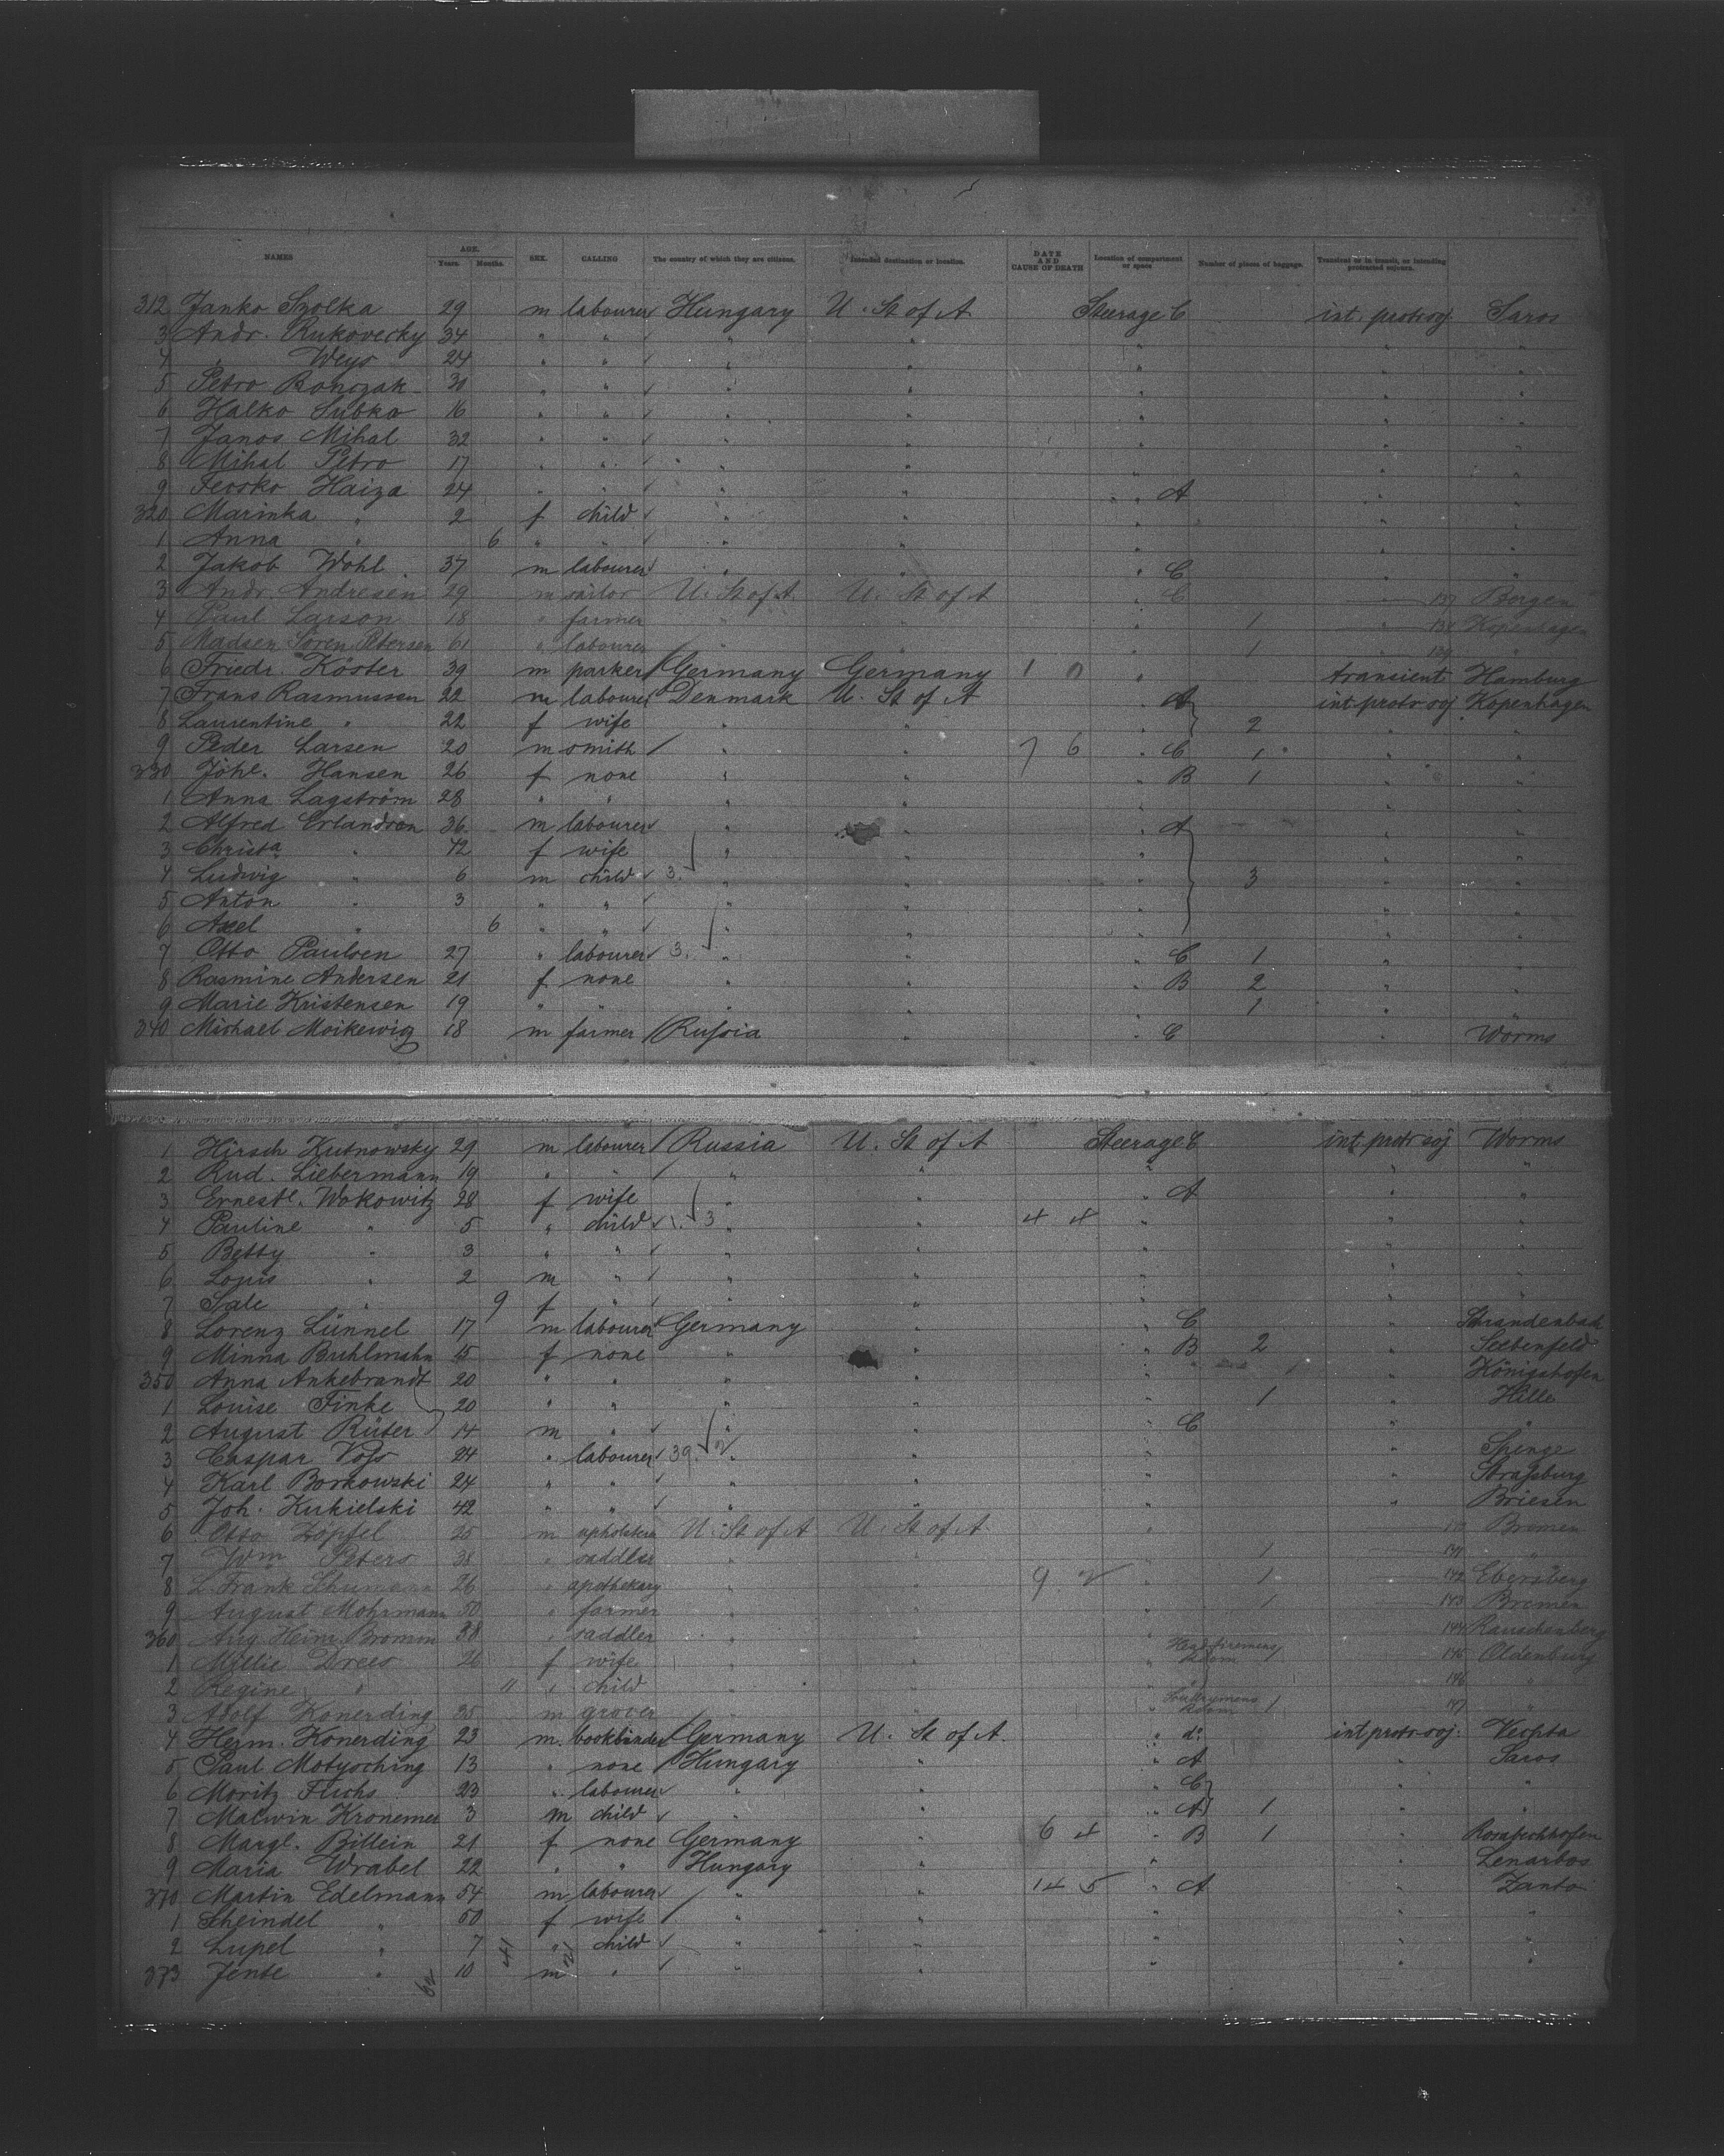 NAMES AGE. Years. Months. SEX. CALLING The country of which they are citizens. Intended destination or location. DATE AND CAUSE OF DEATH Location of compartment or space Number of pieces of baggage. Transient or in transit, or intending protracted sojourn.
312 Janko Szolka 29 m labourer Hungary U. St of A Steerage C int. protr soj. Saros
3 Andr. Rukovecky 34 " " " " " " "
4 " Weys 24 " " " " " " "
5 Petro Ronczak 30 " " " " " " "
6 Halko Subka 16 " " " " " " "
7 Janos Mihal 32 " " " " " " "
8 Mihal Petro 17 " " " " " " "
9 Feosko Haiza 24 " " " " " A " "
320 Marinka " 2 f child " " " " "
1 Anna " 6 " " " " " " "
2 Jakob Wohl 37 m labourer " " " C " "
3 Andr. Andresen 29 m sailor U. St of A U. St of A " C 137 Bergen
4 Paul Larson 18 " farmer " " " 1 138 Kopenhagen
5 Madsen Sören Petersen 61 " labourer " " " 1 139 "
6 Friedr. Köster 39 m parker Germany Germany 1 0 " transient Hamburg
7 Frans Rasmussen 22 m labourer Denmark U. St of A " A int protr soj Kopenhagen
8 Laurentine " 22 f wife " " " 2 " "
9 Peder Larsen 20 m smith " " 7 6 " C 1 " "
330 Johl. Hansen 26 f none " " " B 1 " "
1 Anna Lagström 28 " " " " " " "
2 Alfred Erlandson 36 m labourer " " " A " "
3 Christa " 42 f wife " " " " "
4 Ludwig " 6 m child 3. " " " 3 " "
5 Anton " 3 " " " " " " "
6 Axel " 6 " " " " " " "
7 Otto Paulsen 27 " labourer 3. " " " C 1 " "
8 Rasmine Andersen 21 f none " " " B 2 " "
9 Marie Kristensen 19 " " " " " 1 " "
340 Michael Moikewicz 18 m farmer Russia " " C " Worms
1 Hirsch Kutnowsky 29 m labourer Russia U. St of A Steerage C int protr soj Worms
2 Rud. Liebermann 19 " " " " " " "
3 Ernestl. Wokowitz 28 f wife " " " A " "
4 Pauline " 5 " child 3 " " 4 4 " " "
5 Betty " 3 " " " " " " "
6 Louis " 2 m " " " " " "
7 Sale " 9 f " " " " " "
8 Lorenz Lünnel 17 m labourer Germany " " C "
9 Minna Buhlmahn 15 f none " " " B 2 " Seebenfeld
350 Anna Ankebrandt 20 " " " " " " Königshofen
1 Louise Finke 20 " " " " " 1 " Hille
2 August Rüter 14 m " " " " C " "
3 Caspar Voss 24 " labourer 39. " " " " Spenge
4 Karl Borkowski 24 " " " " " " Strassburg
5 Joh. Kukielski 42 " " " " " " Briesen
6 Otto Zöpfel 25 m upholsterer U. St of A U. St of A " Bremen
7 Wm Peters 38 " saddler " " " 1 141 "
8 L. Frank Schumann 26 " apothekary " " 9 " 1 142 Ebersberg
9 August Mohrmann 50 " farmer " " " 1 143 Bremen
360 Aug. Heinr. Bromm 38 " saddler " " " 144 Rauschenberg
1 Millie Drees 26 f wife " " " Head firemens Room 1 145 Oldenburg
2 Regine " 11 " child " " " 146 "
3 Adolf Konerding 35 m grocer " " " Room 1 147 "
4 Herm. Konerding 23 m. bookbinder Germany U. St of A. " do int protr soj. Vechta
5 Paul Motysching 13 " none Hungary " " A " Saros
6 Moritz Fuchs 23 " labourer " " " C " "
7 Malwin Kronemer 3 m child " " " A 1 " "
8 Margl. Billein 21 f none Germany " 6 4 " B 1 "
9 Maria Wrabel 22 " " Hungary " " " Lenartos
370 Martin Edelmann 54 m labourer " " 14 5 " A " Zanto
1 Scheindel " 50 f wife " " " " "
2 Lupel " 7 " child " " " " "
373 Jente " 10 m " " " " " "